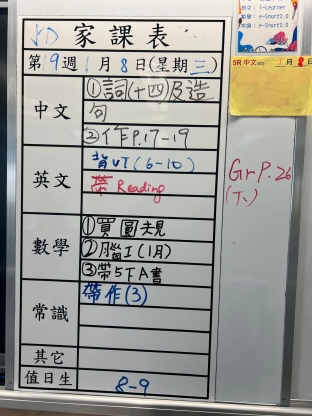 5D 家課表
第19週 1月8日(星期三)
中文
①詞(十四)及造
句
②作P.17-19
英文
背UT(6-10)
帶 Reading
數學
①買圓規
②腦工(1月)
③帶5TA書
常識
帶作(3)
其它
值日生
8-9
Gr P.26
(下)
i-Learner
數學:e-Smart2.0
e-Smart2.0
5R 中文 1月8日